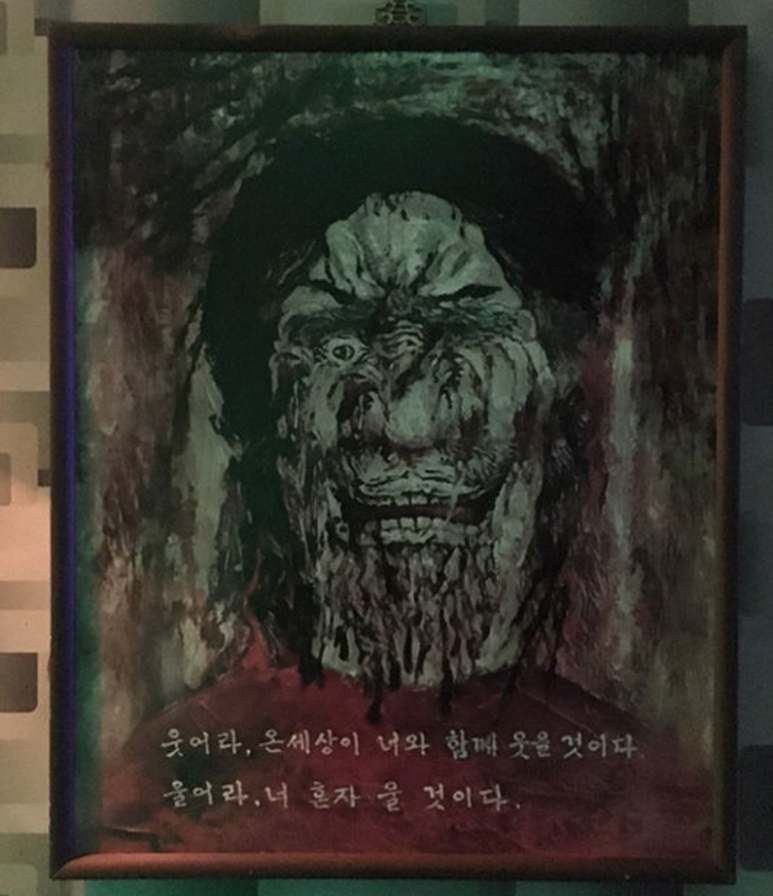 웃어라, 온세상이 너와 함께 웃을 것이다.
울어라, 너 혼자 울 것이다.